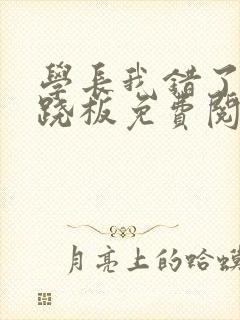 學長我錯了
跷板免費閱
月亮上的蛤蟆